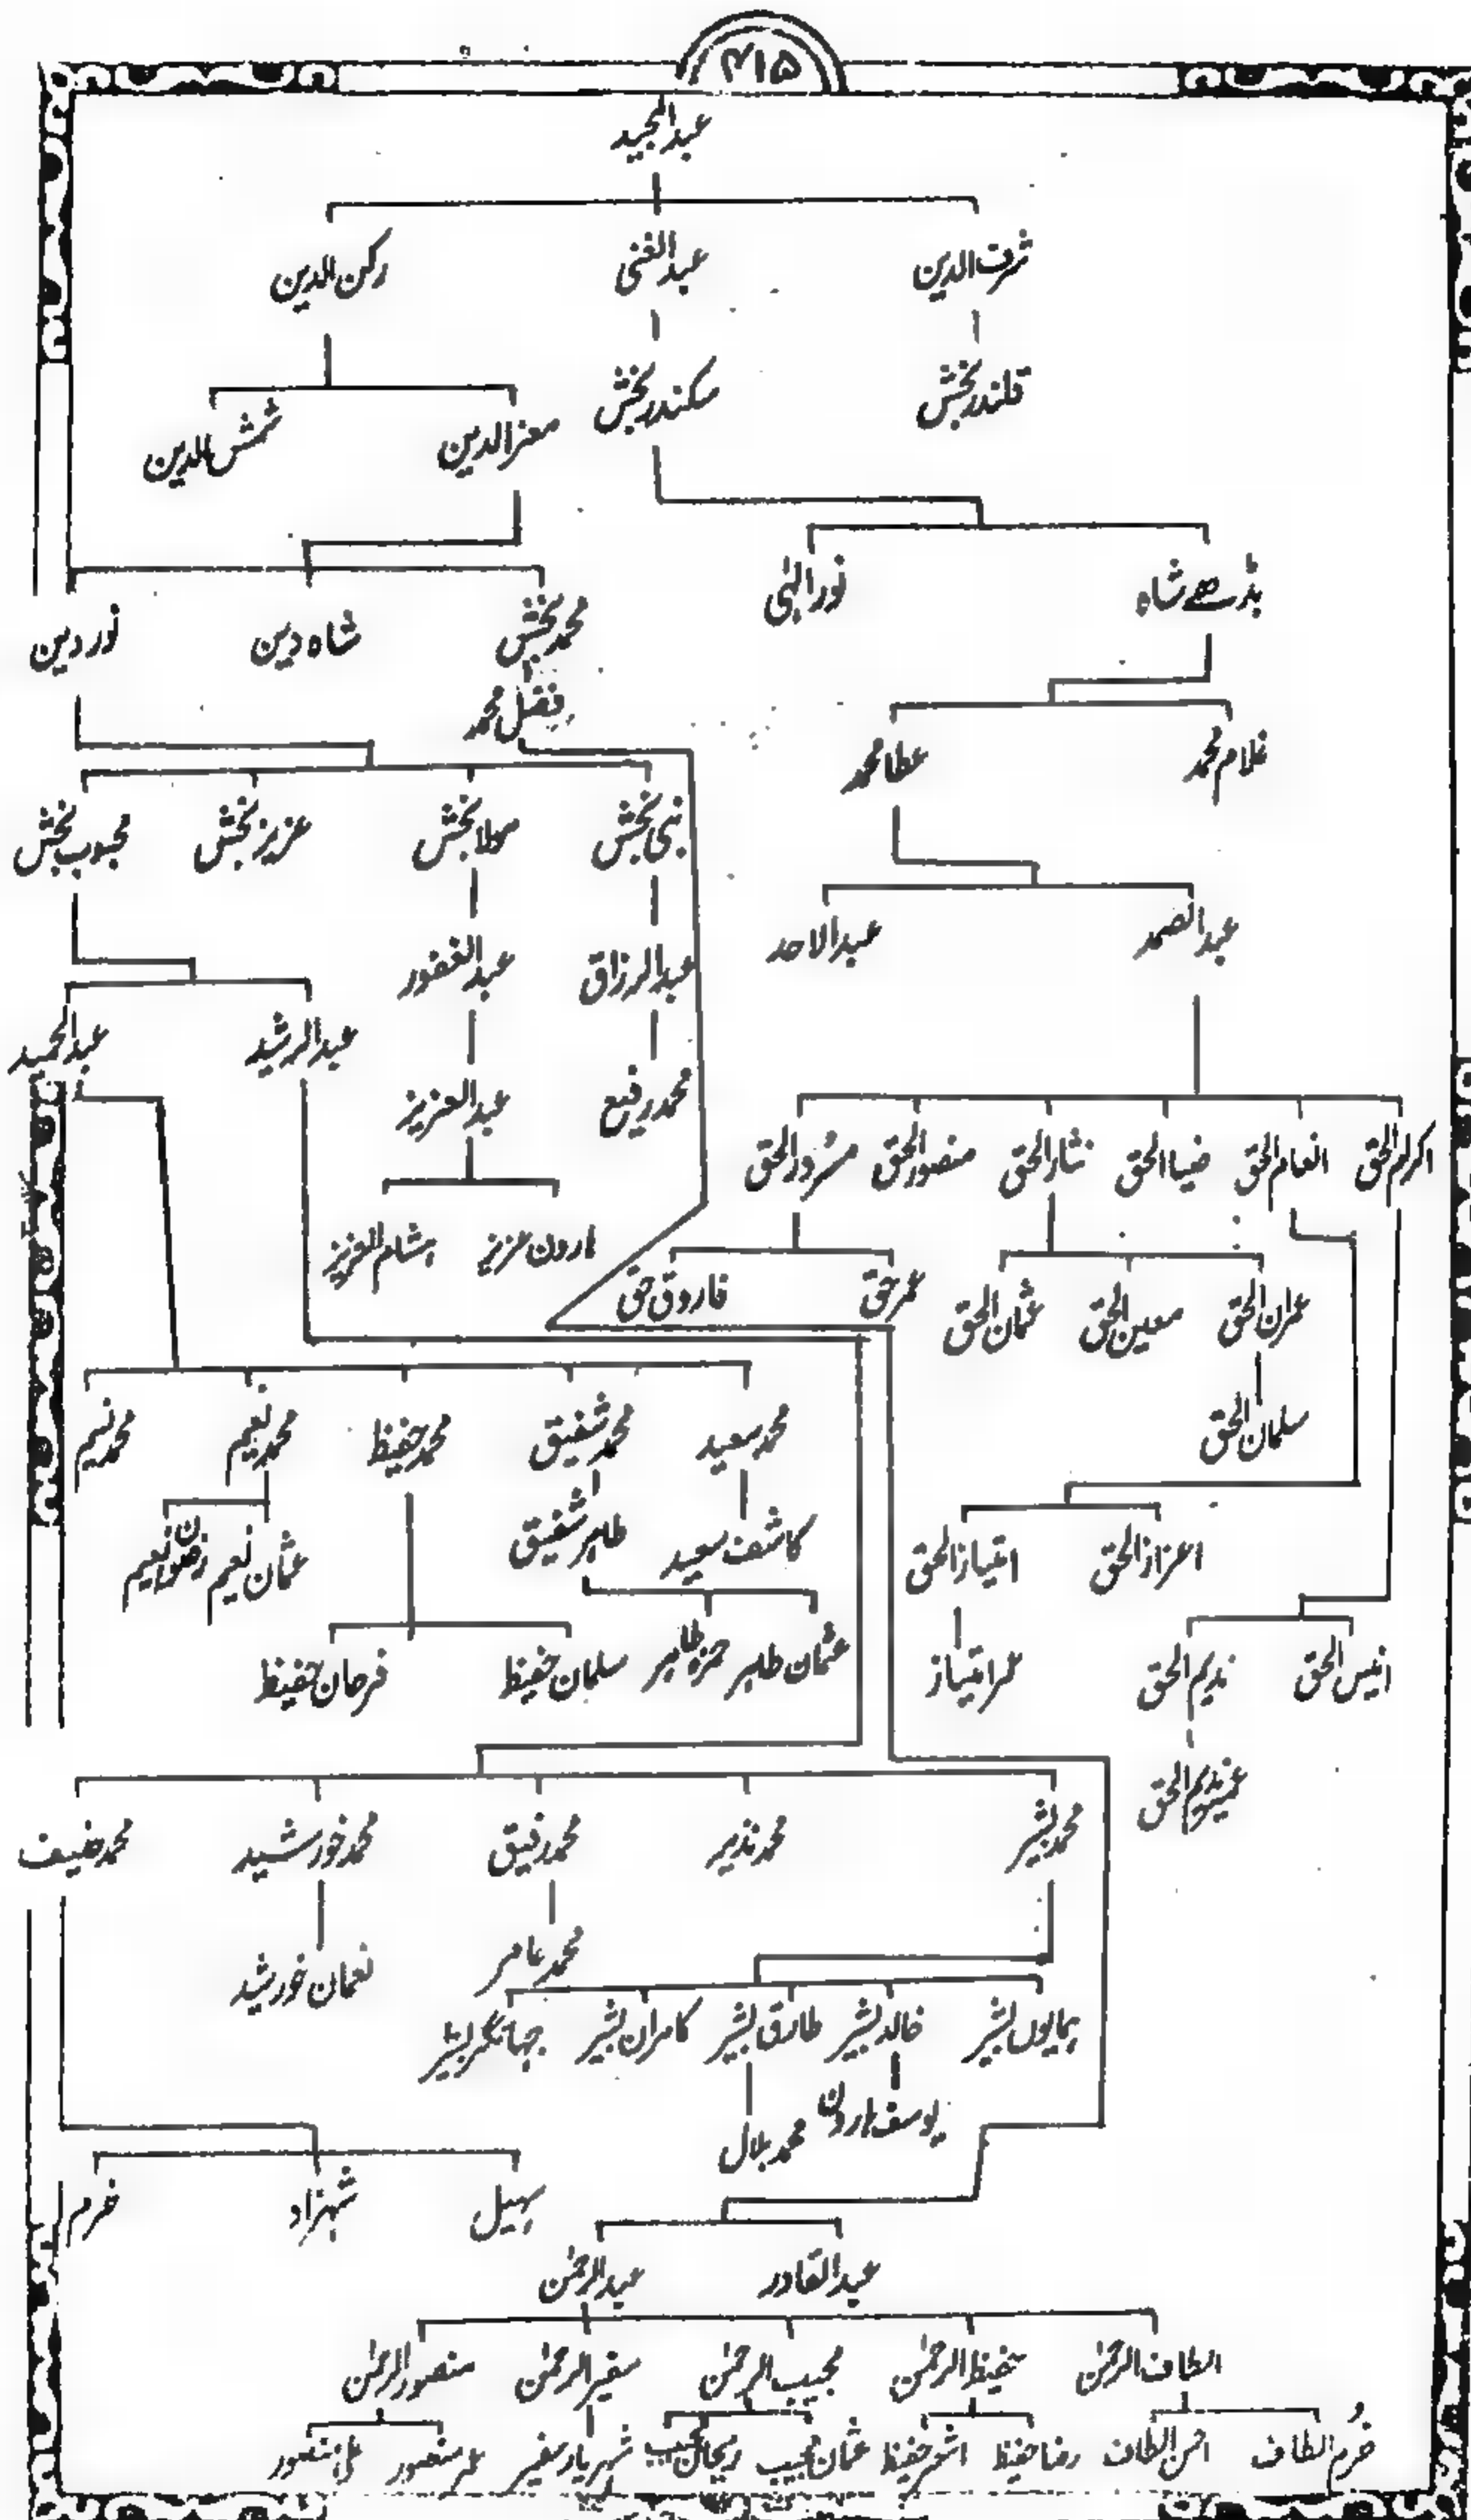 ۴۱۵
عبدالمجید
شرف الدین عبدالغنی رکن الدین
قلندر بخش سکندر بخش معزالدین شمس الدین
بڈھے شاہ نور النبی
محمد بخش شاہ دین نور دین
فضل محمد
غلام محمد عطا محمد
نبی بخش مولا بخش عزیز بخش محبوب بخش
عبدالصمد عبدالاحد
عبدالرزاق عبدالغفور
عبدالرشید عبدالحمید
محمد رفیع عبدالعزیز
اکرام الحق انعام الحق ضیا الحق نثار الحق منصور الحق مسرور الحق
ہارون عزیز ہشام العزیز
عمران الحق معین الحق عثمان الحق عمر حق فاروق حق
سلمان الحق
محمد سعید محمد شفیق محمد حفیظ محمد نعیم محمد نسیم
اعزاز الحق امتیاز الحق
کاشف سعید طاہر شفیق عثمان نعیم رضوان نعیم
انیس الحق ندیم الحق عمر امتیاز
عثمان طاہر حمزہ طاہر سلمان حفیظ فرحان حفیظ
عمیر ندیم الحق
محمد بشیر محمد نذیر محمد رفیق محمد خورشید محمد حنیف
محمد عامر نعمان خورشید
ہمایوں بشیر خالد بشیر طارق بشیر کامران بشیر جہانگیر بشیر
یوسف ہارون محمد بلال
سہیل شہزاد خرم
عبدالقادر عبدالرحمٰن
الطاف الرحمٰن حفیظ الرحمٰن مجیب الرحمٰن سفیر الرحمٰن منصور الرحمٰن
خرم الطاف احسن الطاف رضا حفیظ اشعر حفیظ عثمان مجیب ریحان مجیب شہریار سفیر عمر منصور علی منصور